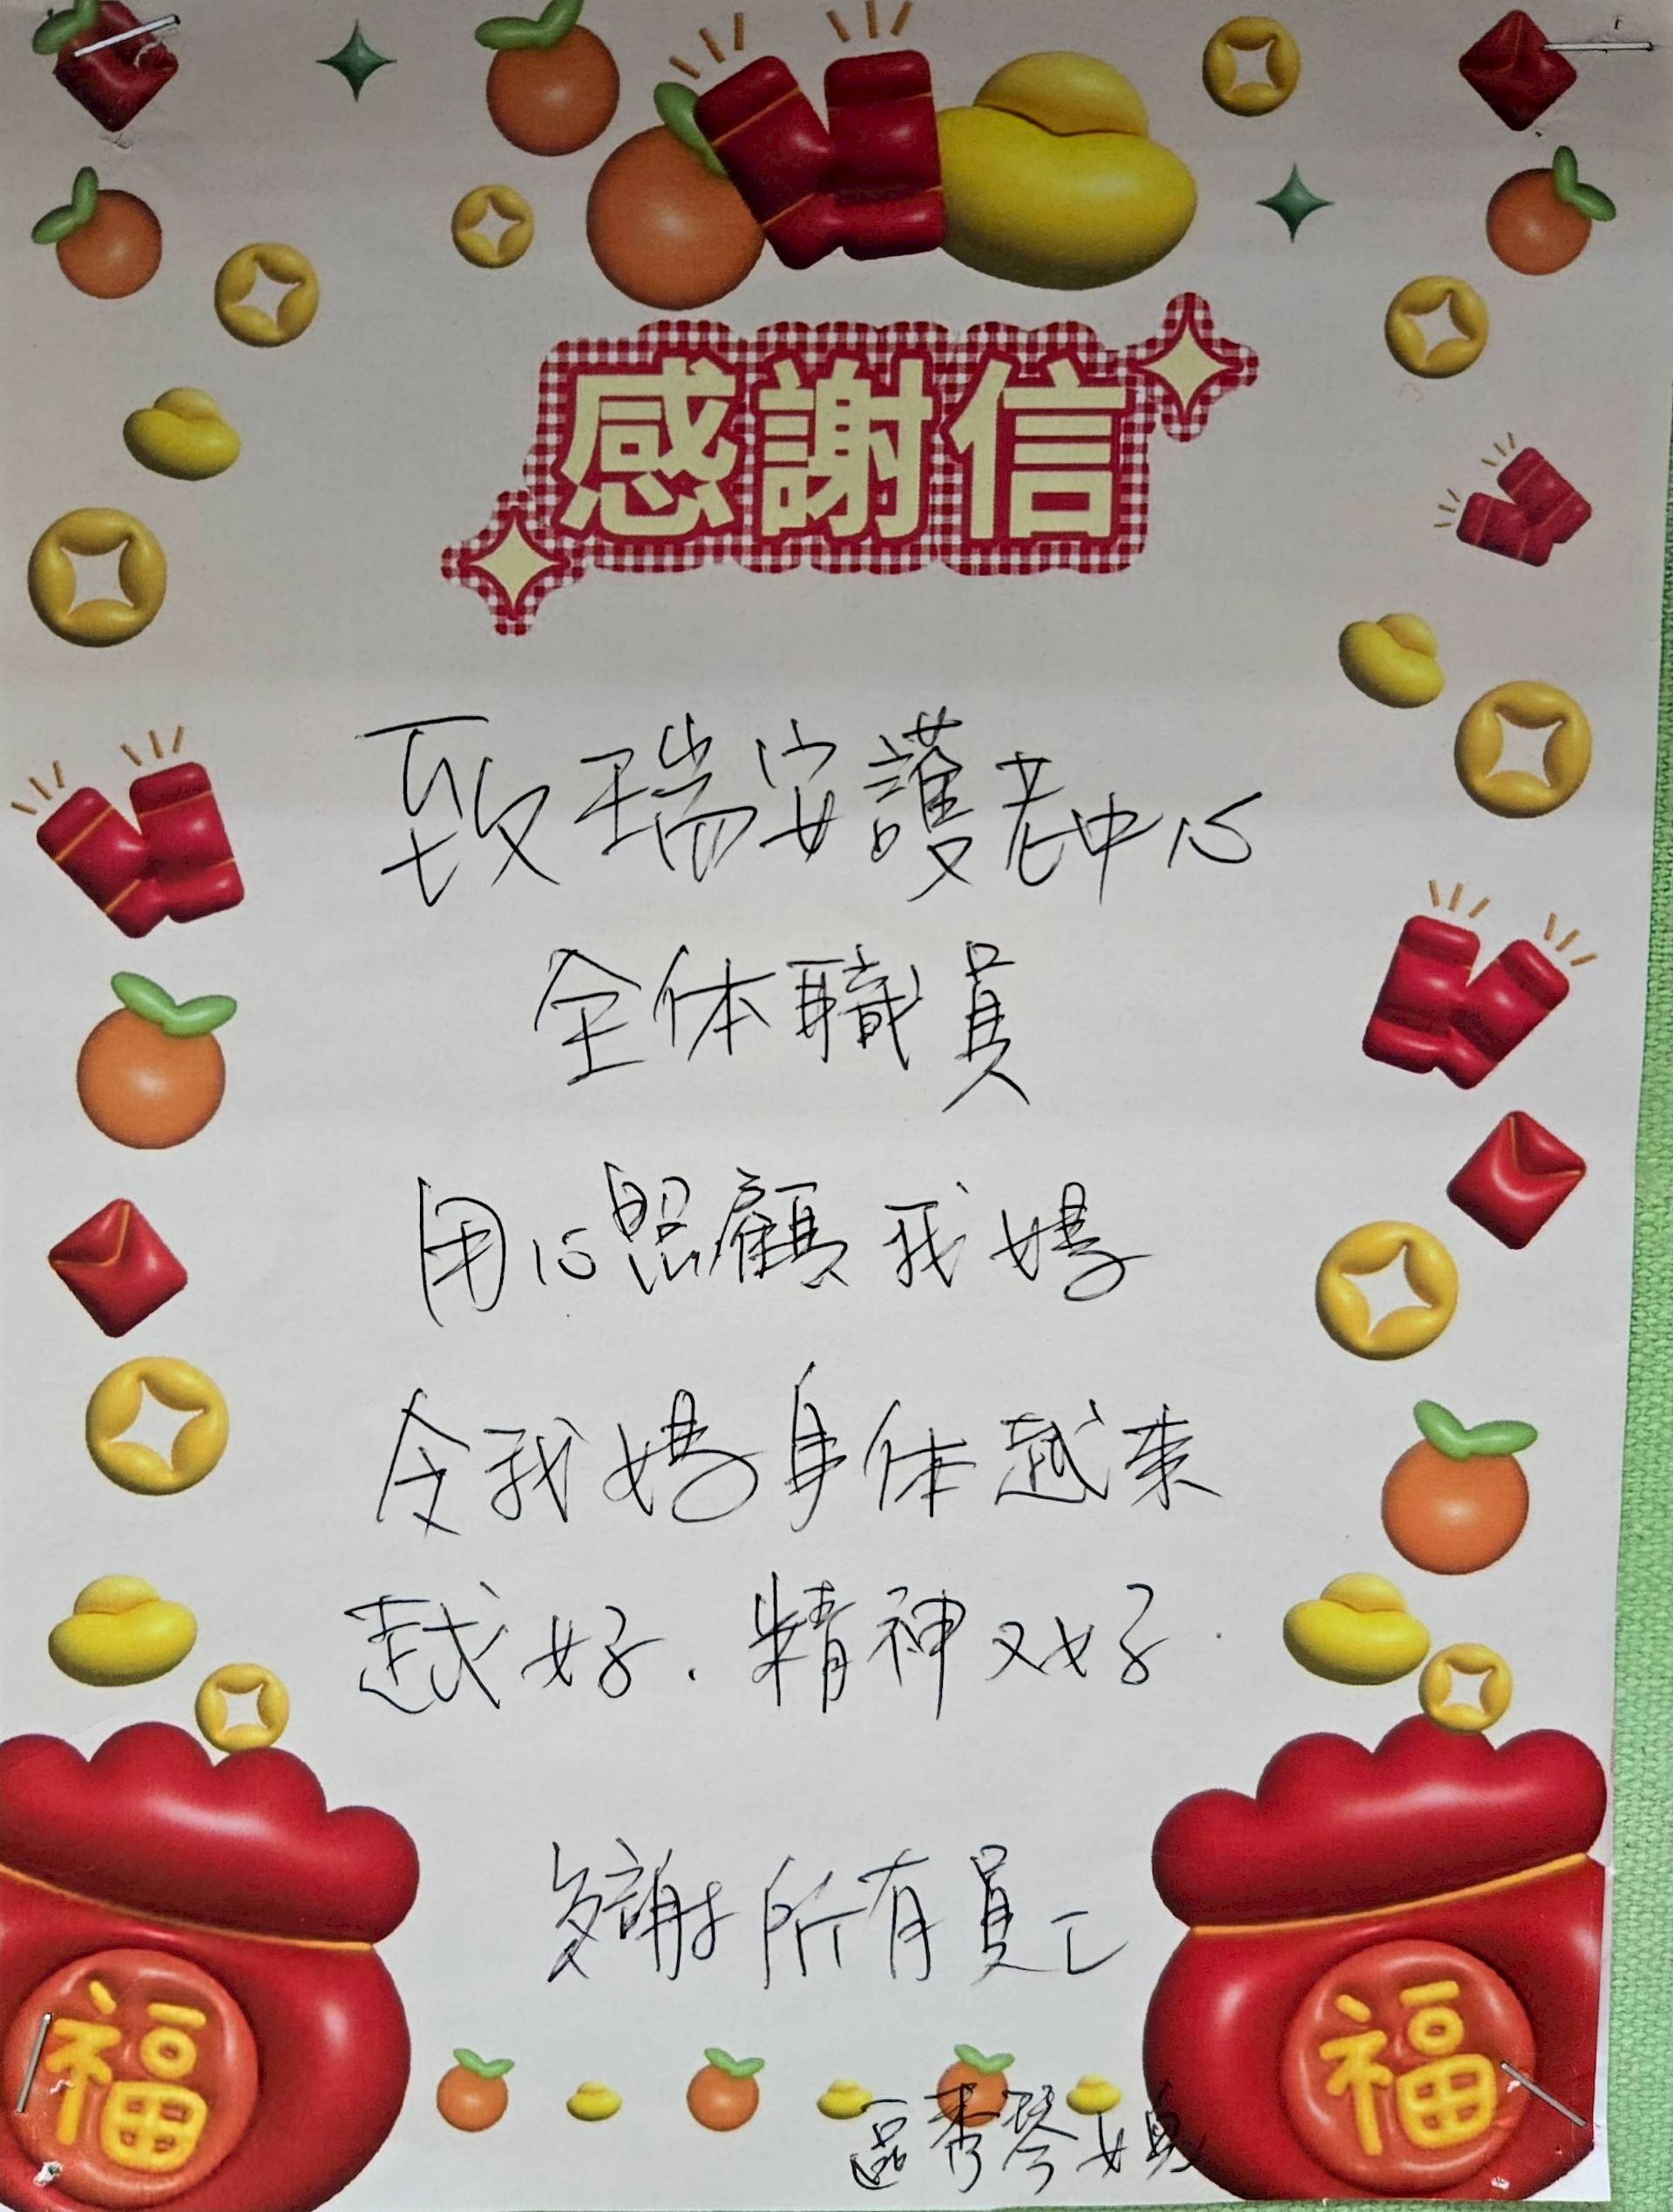 感謝信
致瑞安護老中心
全体職員
用心照顧我媽
令我媽身体越來
越好.精神又好.
多謝所有員工
區秀琴
福
福